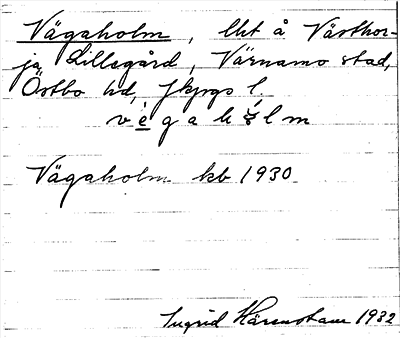 Vägaholm, lht å Västhor-
ja Lillegård, Värnamo stad,
Östbo hd, Jkpgs l.
vègahólm
Vägaholm kb 1930
Ingrid Härenstam 1932